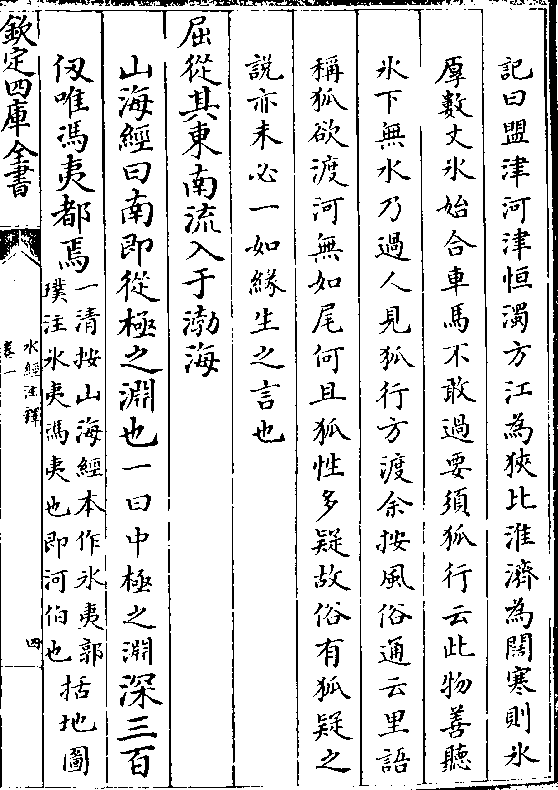 記曰盟津河津恒濁方江為狹比淮濟為闊寒則氷
厚數丈氷始合車馬不敢過要須狐行云此物善聽
氷下無水乃過人見狐行方渡余按風俗通云里語
稱狐欲渡河無如尾何且狐性多疑故俗有狐疑之
說亦未必一如緣生之言也
屈從其東南流入于渤海
山海經曰南即從極之淵也一曰中極之淵深三百
仭唯馮夷都焉一清按山海經本作氷夷郭
璞注氷夷馮夷也即河伯也括地圖
欽定四庫全書
水經注釋
卷一
四